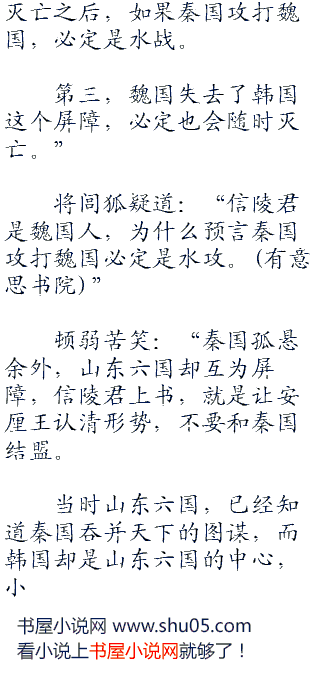 灭亡之后，如果秦国攻打魏
国，必定是水战。
第三，魏国失去了韩国
这个屏障，必定也会随时灭
亡。”
将闾狐疑道：“信陵君
是魏国人，为什么预言秦国
攻打魏国必定是水攻。(有意
思书院)”
顿弱苦笑：“秦国孤悬
余外，山东六国却互为屏
障，信陵君上书，就是让安
厘王认清形势，不要和秦国
结盟。
当时山东六国，已经知
道秦国吞并天下的图谋，而
韩国却是山东六国的中心，
小
书屋小说网 www.shu05.com
看小说上书屋小说网就够了！